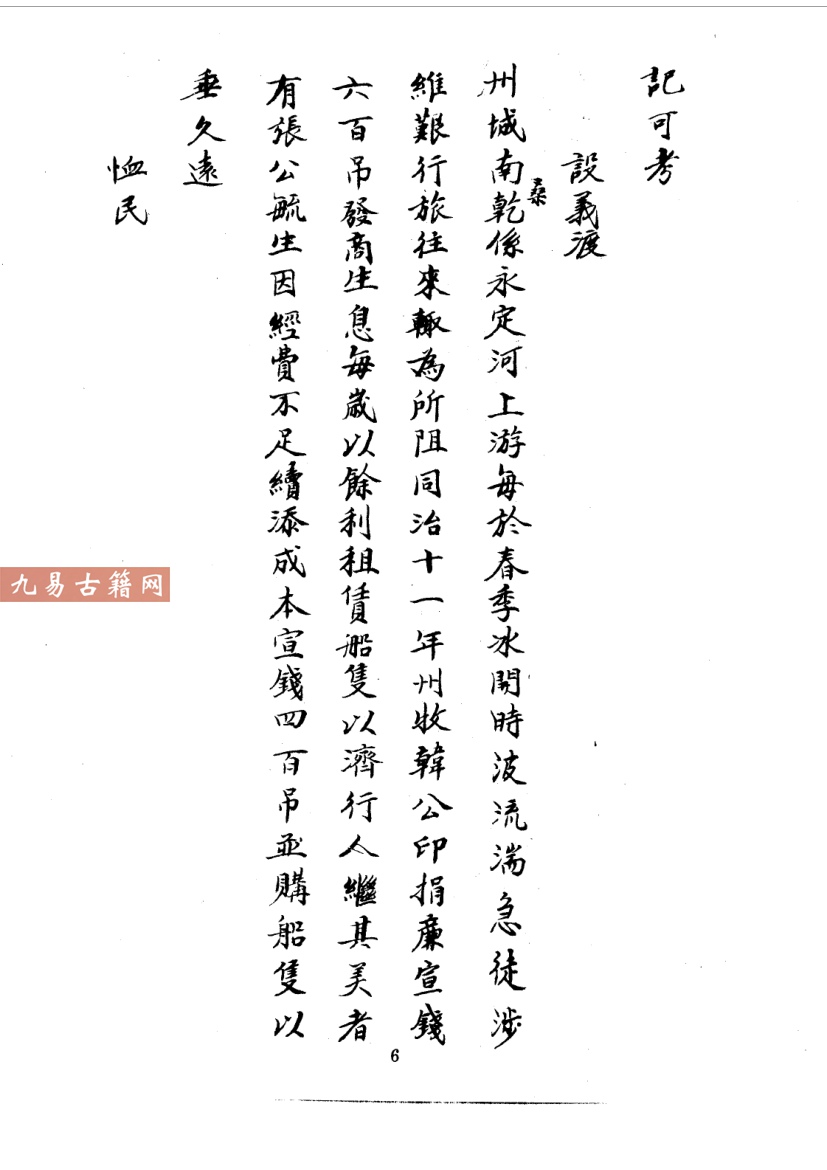 記可考
設義渡
州城南乾桑係永定河上游每於春季冰開時波流湍急徒涉
維艱行旅往來輙為所阻同治十一年州牧韓公印捐廉宣錢
六百吊發商生息每歲以餘利租賃船隻以濟行人繼其美者
有張公毓生因經費不足續添成本宣錢四百吊並購船隻以
垂久遠
恤民
九易古籍网
6